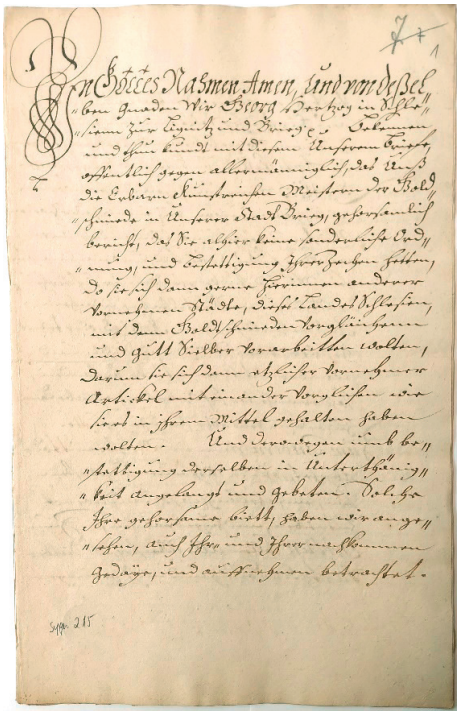 7
1
In Gottes Nahmen Amen, Und von deßel„
„ben Gnaden Wir Georg Hertzog in Schle„
„sien zur Lignitz und Brieg p. Bekennen
und thun kundt mit diesem Unserem briefe,
offentlich gegen allermänniglich, das Unß
die Erbarn Kunstreichen Meistern der Gold„
„schmiede in Unserer Stadt Brieg, gehorsamlich
bericht, das Sie alhier keine sonderliche Ord„
„nung, und bestettigung Ihrer Zechen hetten,
do sie sich dann gerne hierinnen anderer
Vornehmen Städte, dieses Landes Schlesien,
mit dem Goldtschmieden
und gutt Sielber Vorarbeitten wolten,
darum sie sich dann etzlicher Vornehmer
Articul mit einander Vorglichen wie
sie es in ihrem Mittel gehalten haben
wolten. Und derowegen umb be„
„stettigung derselben in Unterthänig„
„keit angelangt und gebeten. Solche
Ihre gehorsame biett, haben wir ange„
„sehen, auch Ihr und Ihrer nachkommen
gedeye, und auffnehmen betrachtet.
Sygn 215